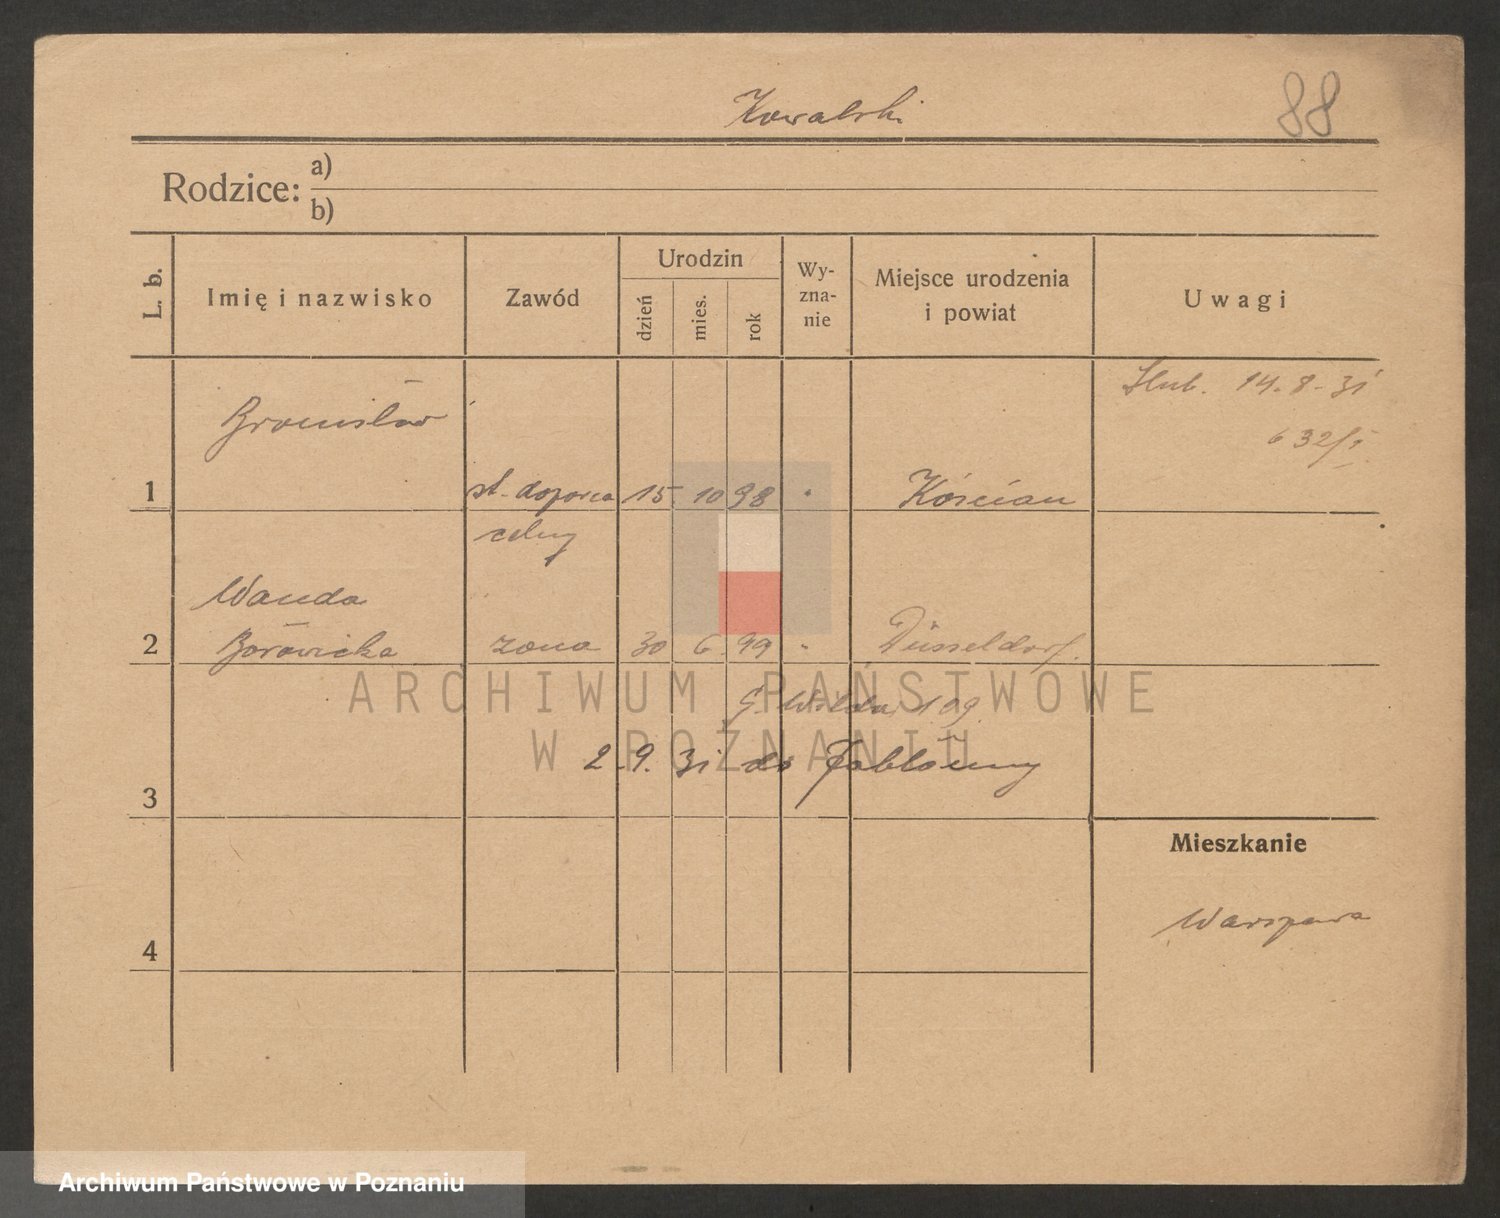 Kowalski
88
Rodzice: a)
b)
L. b.
Imię i nazwisko
Zawód
Urodzin
dzień
mies.
rok
Wy-
zna-
nie
Miejsce urodzenia
i powiat
Uwagi
Ślub. 14.8.31
632/I
Bronisław
1
st. dozorca 15 10 98 " Kościan
celny
Wanda
2
Borowicka żona 30 6 99 " Düsseldorf.
G. Wilda 109
2.9.31 do Jabłonny
3
Mieszkanie
Warszawa
4
ARCHIWUM PAŃSTWOWE
W POZNANIU
Archiwum Państwowe w Poznaniu